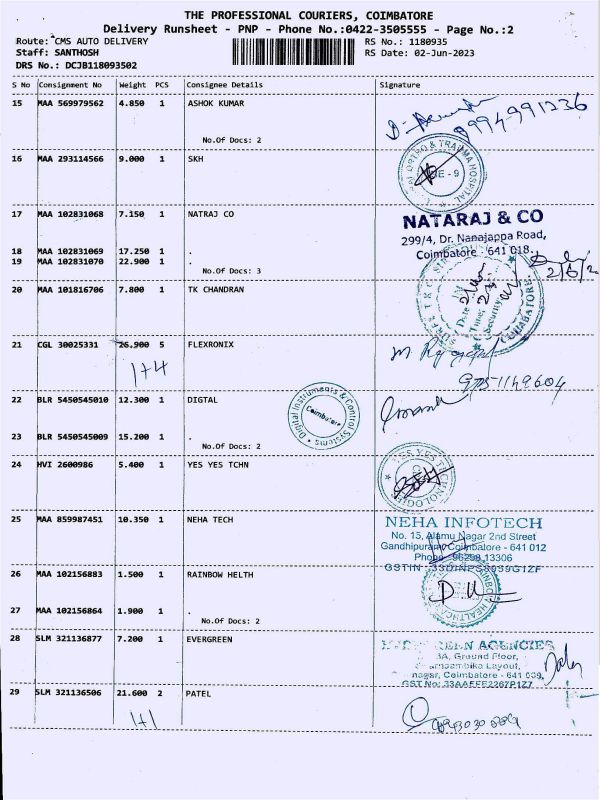 THE PROFESSIONAL COURIERS, COIMBATORE
Delivery Runsheet - PNP - Phone No.:0422-3505555 - Page No.:2
Route: CMS AUTO DELIVERY RS No.: 1180935
Staff: SANTHOSH RS Date: 02-Jun-2023
DRS No.: DCJB118093502
S No Consignment No Weight PCS Consignee Details Signature
15 MAA 569979562 4.850 1 ASHOK KUMAR
9994991236
No.Of Docs: 2
ORTHO & TRAUMA HOSPITAL
16 MAA 293114566 9.000 1 SKH
17 MAA 102831068 7.150 1 NATRAJ CO
NATARAJ & CO
299/4, Dr. Nanajappa Road,
Coimbatore - 641 018.
18 MAA 102831069 17.250 1 .
19 MAA 102831070 22.900 1 .
No.Of Docs: 3
20 MAA 101816706 7.800 1 TK CHANDRAN
Date
Time
Security
21 CGL 30025331 26.900 5 FLEXRONIX
1+4
9751149604
22 BLR 5450545010 12.300 1 DIGTAL
Digital Instruments & Control Systems
Coimbatore
23 BLR 5450545009 15.200 1 .
No.Of Docs: 2
24 HVI 2600986 5.400 1 YES YES TCHN
YES YES TECHNOLOGIES
25 MAA 859987451 10.350 1 NEHA TECH
NEHA INFOTECH
No. 15, Alamu Nagar 2nd Street
Gandhipuram, Coimbatore - 641 012
Phone: 96298 13306
GSTIN
26 MAA 102156883 1.500 1 RAINBOW HELTH
27 MAA 102156864 1.900 1 .
No.Of Docs: 2
28 SLM 321136877 7.200 1 EVERGREEN
EVERGREEN AGENCIES
3A, Ground Floor,
Layout,
nagar, Coimbatore - 641 009,
GST No: 33AAFFE2267P1Z7
29 SLM 321136506 21.600 2 PATEL
1+1